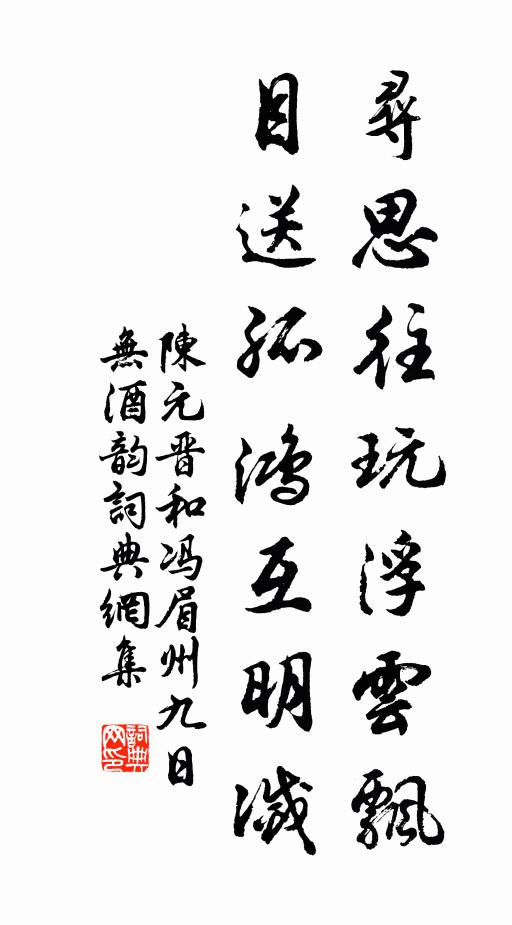 尋思往玩浮雲飄
目送孤鴻互明滅
陳元晋和冯眉州九日
無酒韵詞典網集
詞典网印